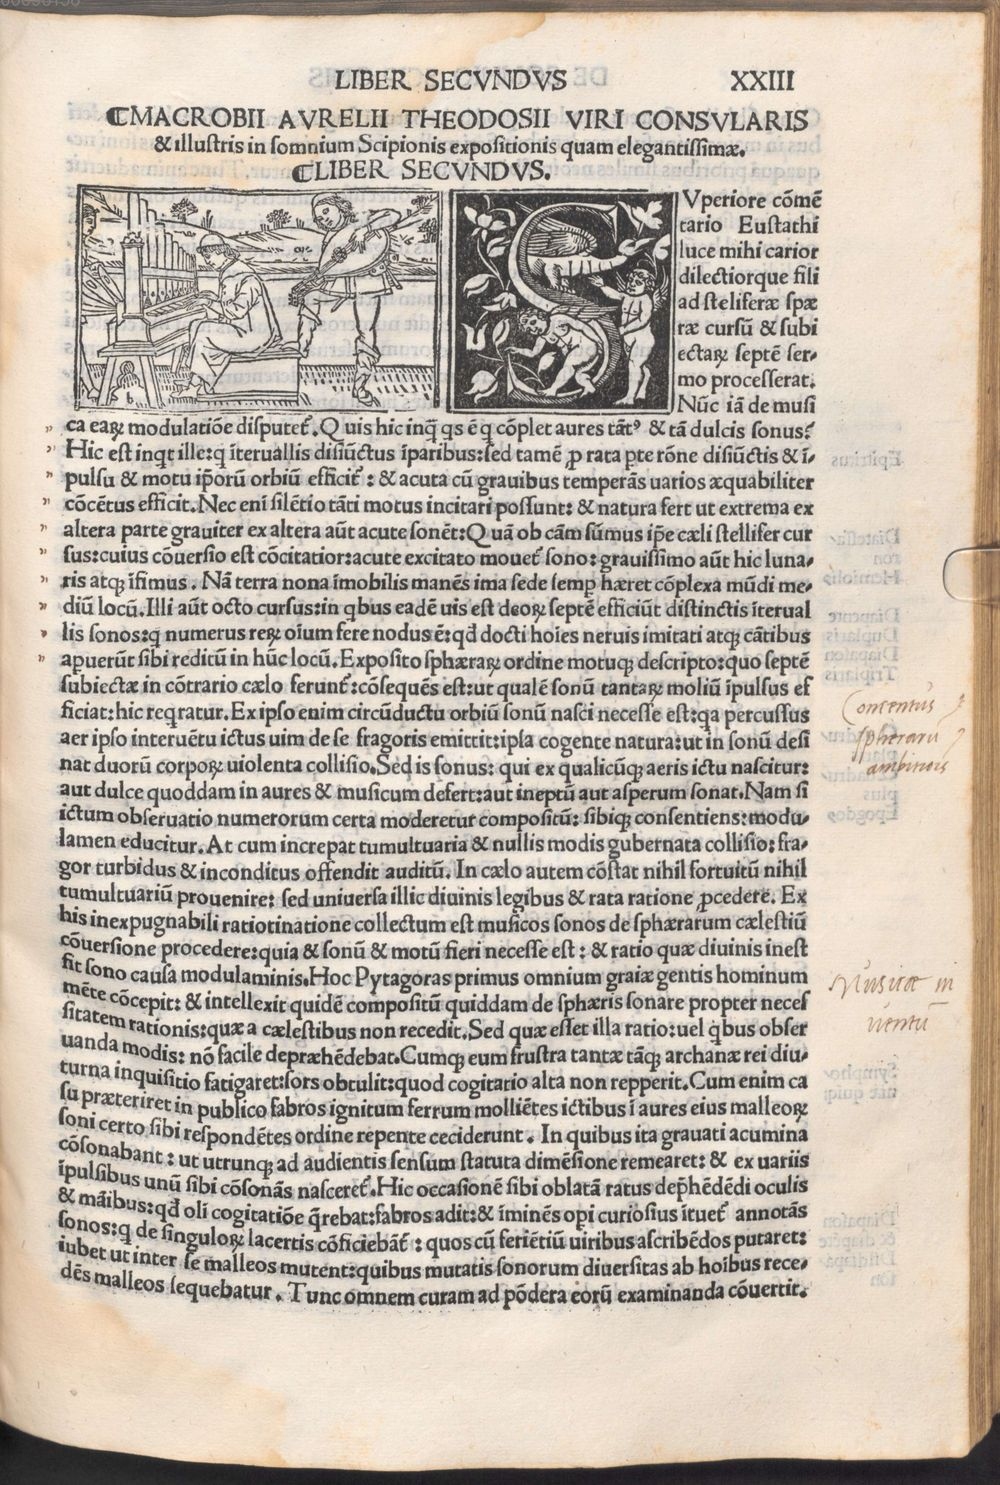 LIBER SECVNDVS XXIII
MACROBII AVRELII THEODOSII VIRI CONSVLARIS
& illustris in somnium Scipionis expositionis quam elegantissimæ.
LIBER SECVNDVS.
Vperiore cōmē
tario Eustathi
luce mihi carior
dilectiorque fili
ad steliferæ spæ
ræ cursū & subi
ectaꝝ septē ser-
mo processerat.
Nūc iā de musi
ca eaꝝ modulatiōe disputet᷑. Quis hic inq̄ qs ē q̄ cōplet aures tātꝰ & tā dulcis sonus?
Hic est inqt ille: q̄ īteruallis disiūctus īparibus: sed tamē ꝓ rata ꝑte rōne disiūctis & ī-
pulsu & motu ip̄orū orbiū efficit᷑: & acuta cū grauibus temperās uarios æquabiliter
cōcētus efficit. Nec eni silētio tāti motus incitari possunt: & natura fert ut extrema ex
altera parte grauiter ex altera aūt acute sonēt: Quā ob cām sūmus ip̄e cæli stellifer cur
sus: cuius cōuersio est cōcitatior: acute excitato mouet᷑ sono: grauissimo aūt hic luna-
ris atqꝫ īfimus. Nā terra nona īmobilis manēs ima sede semꝑ hæret cōplexa mūdi me-
diū locū. Illi aūt octo cursus: in qbus eadē uis est deoꝝ septē efficiūt distinctis īterual
lis sonos: q̄ numerus reꝝ oīum fere nodus ē: qd̄ docti hoīes neruis imitati atqꝫ cātibus
aꝑuerūt sibi reditū in hūc locū. Exposito sphæraꝝ ordine motuqꝫ descripto: quo septē
subiectæ in cōtrario cælo ferunt᷑: cōsequēs est: ut qualē sonū tantaꝝ moliū īpulsus ef
ficiat: hic reqratur. Ex ipso enim circūductu orbiū sonū nasci necesse est: qa percussus
aer ipso interuētu ictus uim de se fragoris emittit: ipsa cogente natura: ut in sonū desi
nat duorū corpoꝝ uiolenta collisio. Sed is sonus: qui ex qualicūqꝫ aeris ictu nascitur:
aut dulce quoddam in aures & musicum defert: aut ineptū aut asperum sonat. Nam si
ictum obseruatio numerorum certa moderetur compositū: sibiqꝫ consentiens: modu-
lamen educitur. At cum increpat tumultuaria & nullis modis gubernata collisio: fra-
gor turbidus & inconditus offendit auditū. In cælo autem cōstat nihil fortuitū nihil
tumultuariū prouenire: sed uniuersa illic diuinis legibus & rata ratione ꝓcedere. Ex
his inexpugnabili ratiotinatione collectum est musicos sonos de sphærarum cælestiū
cōuersione procedere: quia & sonū & motū fieri necesse est: & ratio quæ diuinis inest
fit sono causa modulaminis. Hoc Pytagoras primus omnium graiæ gentis hominum
mēte cōcepit: & intellexit quidē compositū quiddam de sphæris sonare propter neces
sitatem rationis: quæ a cælestibus non recedit. Sed quæ esset illa ratio: uel q̄bus obser
uanda modis: nō facile depræhēdebat. Cumqꝫ eum frustra tantæ tāqꝫ archanæ rei diu-
turna inquisitio fatigaret: sors obtulit: quod cogitatio alta non repperit. Cum enim ca
su præteriret in publico fabros ignitum ferrum molliētes ictibus ī aures eius malleoꝝ
soni certo sibi respondētes ordine repente ceciderunt. In quibus ita grauati acumina
cōsonabant: ut utrunqꝫ ad audientis sensum statuta dimēsione remearet: & ex uariis
īpulsibus unū sibi cōsonās nasceret᷑. Hic occasionē sibi oblatā ratus dep̄hēdēdi oculis
& māibus: qd̄ oli cogitatiōe q̄rebat: fabros adit: & īminēs oꝑi curiosius ītuet᷑ annotās
sonos: q̄ de singuloꝝ lacertis cōficiebāt᷑: quos cū feriētiū uiribus ascribēdos putaret:
iubet ut inter se malleos mutent: quibus mutatis sonorum diuersitas ab hoībus rece-
dēs malleos sequebatur. Tunc omnem curam ad pōdera eorū examinanda cōuertit.
Concentus
spherarū
Musicæ in
uentū